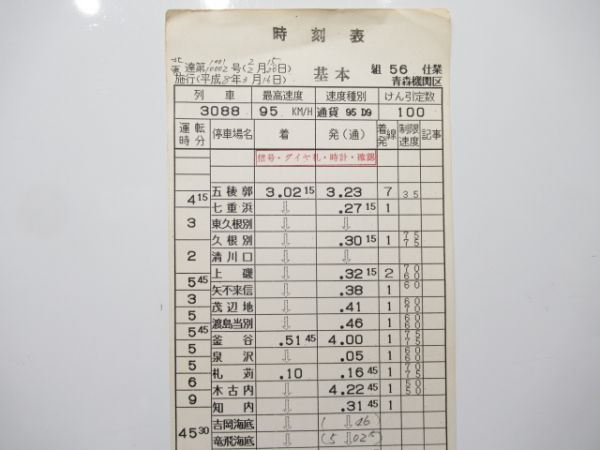 時刻表
達第 号( 月 日)
施行(平成8年3月16日)
基本
組 56 仕業
青森機関区
列車 最高速度 速度種別 けん引定数
3088 95 KM/H 通貨 95 D9 100
運転時分 停車場名 着 発(通) 着発線 制限速度 記事
信号・ダイヤ札・時計・確認
五稜郭 3.02 15 3.23 7 35
4 15
七重浜 ⇩ .27 15 1
3
東久根別 ⇩ ⇩
久根別 ⇩ .30 15 1 75 75
2
清川口 ⇩ ⇩
上磯 ⇩ .32 15 2 70 60
5 45
矢不来信 ⇩ .38 1 60
3
茂辺地 ⇩ .41 1 60 70
5
渡島当別 ⇩ .46 1 60 60
5 45
釜谷 .51 45 4.00 1 75 75
5
泉沢 ⇩ .05 1 60 60
5
札苅 .10 .16 45 1 70 75
6
木古内 ⇩ 4.22 45 1 50 50
9
知内 ⇩ .31 45 1
吉岡海底 ⇩ ( ⇩ 46)
45 30
竜飛海底 ⇩ (5 ⇩ 02 5)